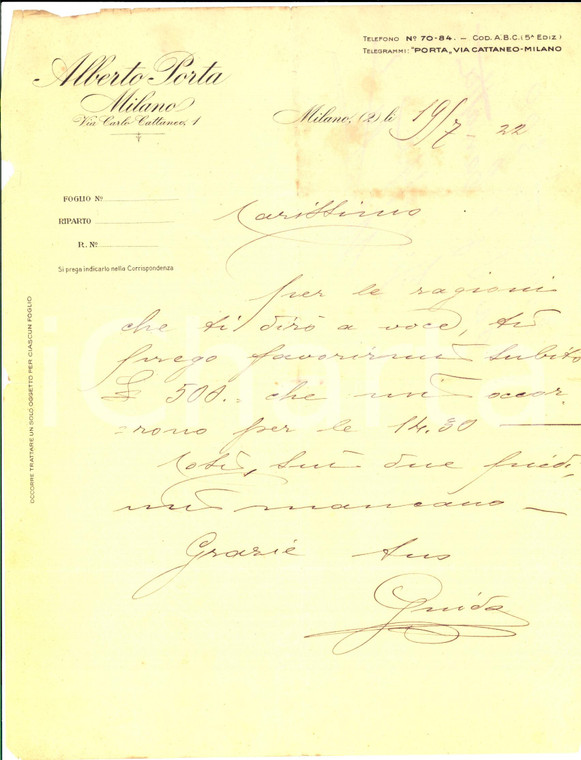 TELEFONO Nº 70-84. — COD. A.B.C. (5ª EDIZ.)
TELEGRAMMI: "PORTA„ VIA CATTANEO-MILANO
Alberto Porta
Milano
Via Carlo Cattaneo, 1
Milano, (2) li 19/7 - 22
FOGLIO Nº
RIPARTO
R. Nº
Si prega indicarlo nella Corrispondenza
OCCORRE TRATTARE UN SOLO OGGETTO PER CIASCUN FOGLIO
Carissimo.
per le ragioni
che ti dirò a voce, ti
prego favorirmi subito
£ 500.= che mi occor
=rono per le 14.30 —
Così, sui due piedi
mi mancano —
Grazie tuo
Guido
iCharta